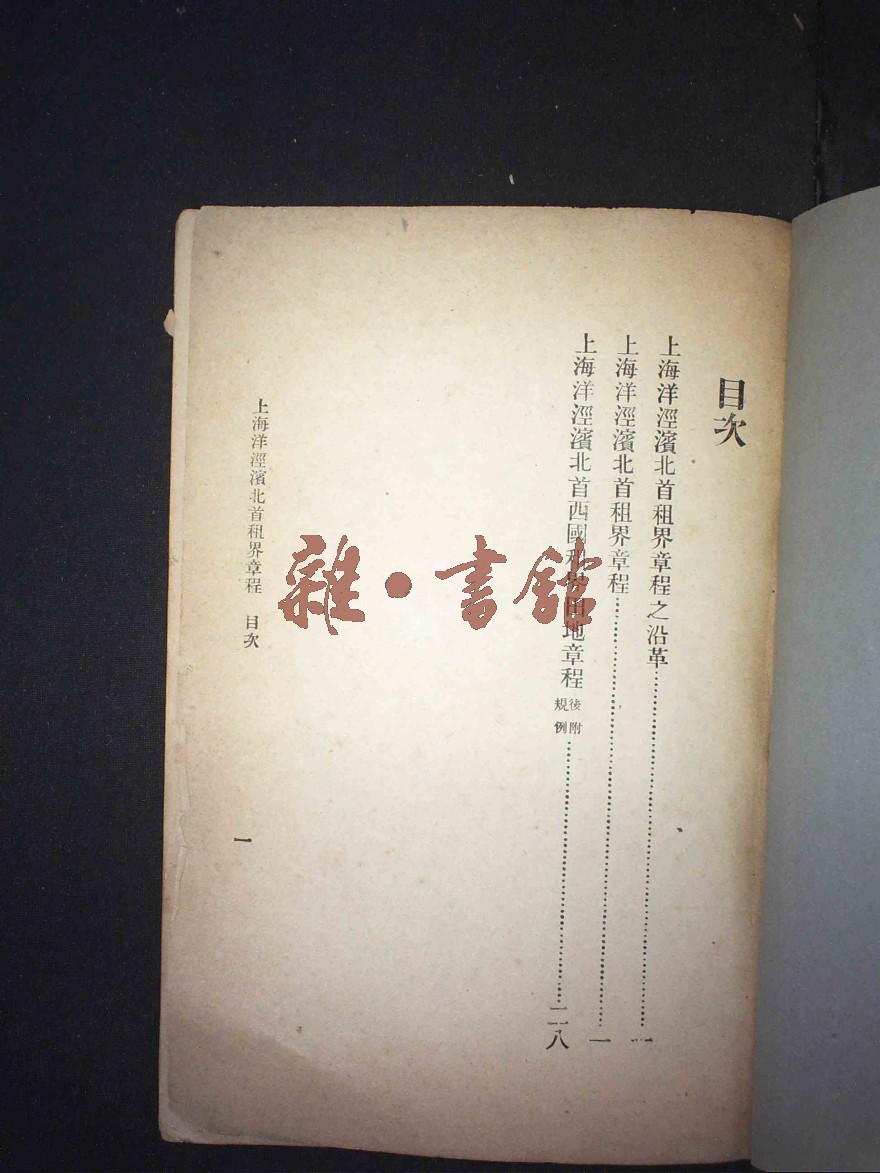 目次
上海洋涇濱北首租界章程之沿革……一
上海洋涇濱北首租界章程……一
上海洋涇濱北首西國租界田地章程 後附規例……二八
上海洋涇濱北首租界章程 目次
一
雜·書館